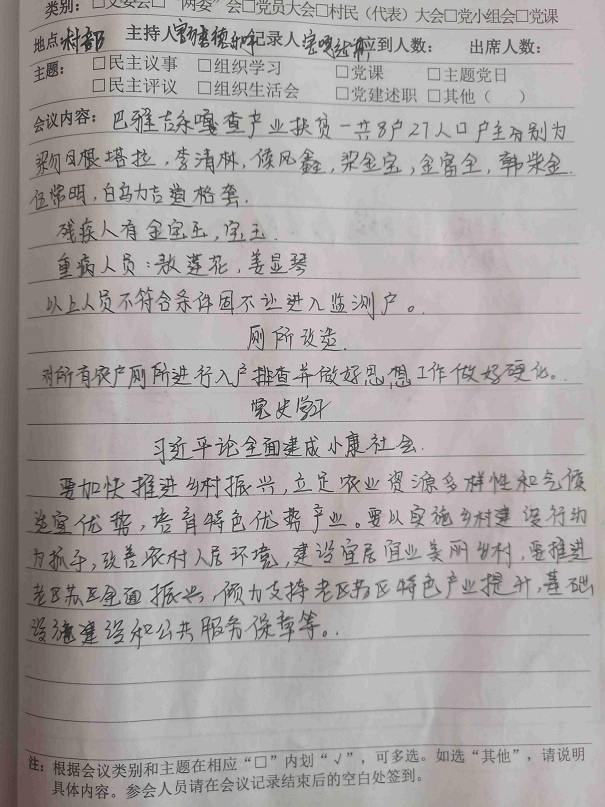 类别：□支委会□“两委”会□党员大会□村民（代表）大会□党小组会□党课
地点：村部 主持人： 记录人： 应到人数： 出席人数：
主题：□民主议事 □组织学习 □党课 □主题党日
□民主评议 □组织生活会 □党建述职 □其他（ ）
会议内容：巴雅吉乐嘎查产业扶贫一共8户27人口户主分别为
根塔拉，李清林，侯凤鑫，梁金宝，金富全，韩柴金．
伍常明，白乌力吉 格套．
残疾人有金宝玉，宝玉．
重病人员：敖莲花，姜显琴
以上人员不符合条件因不让进入监测户。
厕所改造．
对所有农户厕所进行入户排查并做好思想工作做好硬化。
党史学习
习近平论全面建成小康社会．
要加快推进乡村振兴，立足农业资源多样性和气候
适宜优势，培育特色优势产业。要以实施乡村建设行动
为抓手，改善农村人居环境，建设宜居宜业美丽乡村，要推进
老区苏区全面振兴，倾力支持老区苏区特色产业提升，基础
设施建设和公共服务保障等。
注：根据会议类别和主题在相应“□”内划“√”，可多选。如选“其他”，请说明
具体内容。参会人员请在会议记录结束后的空白处签到。